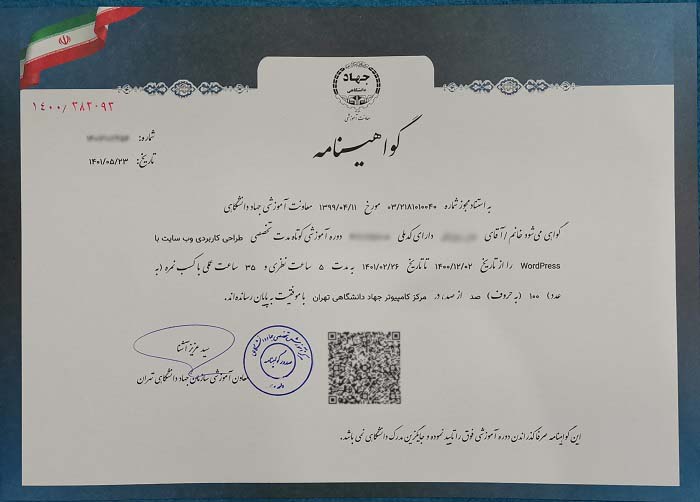 جهاد
دانشگاهی
معاونت آموزشی
۱۴۰۰/ ۳۸۳۰۹۲
گواهینامه
شماره:
تاریخ: ۱۴۰۱/۰۵/۲۳
به استناد مجوز شماره ۰۳/۲۱۸۱۰۱۰۰۴۰ مورخ ۱۳۹۹/۰۴/۱۱ معاونت آموزشی جهاد دانشگاهی
گواهی می‌شود خانم / آقای دارای کد ملی دوره آموزشی کوتاه مدت تخصصی طراحی کاربردی وب سایت با
WordPress را از تاریخ ۱۴۰۰/۱۲/۰۲ تا تاریخ ۱۴۰۱/۰۲/۲۶ به مدت ۵ ساعت نظری و ۳۵ ساعت عملی با کسب نمره (به
عدد) ۱۰۰ (به حروف) صد از صد، در مرکز کامپیوتر جهاد دانشگاهی تهران با موفقیت به پایان رسانده‌اند.
سید عزیز آشنا
معاون آموزشی سازمان جهاد دانشگاهی تهران
صدور گواهینامه
این گواهینامه صرفا گذراندن دوره آموزشی فوق را تایید نموده و جایگزین مدرک دانشگاهی نمی باشد.